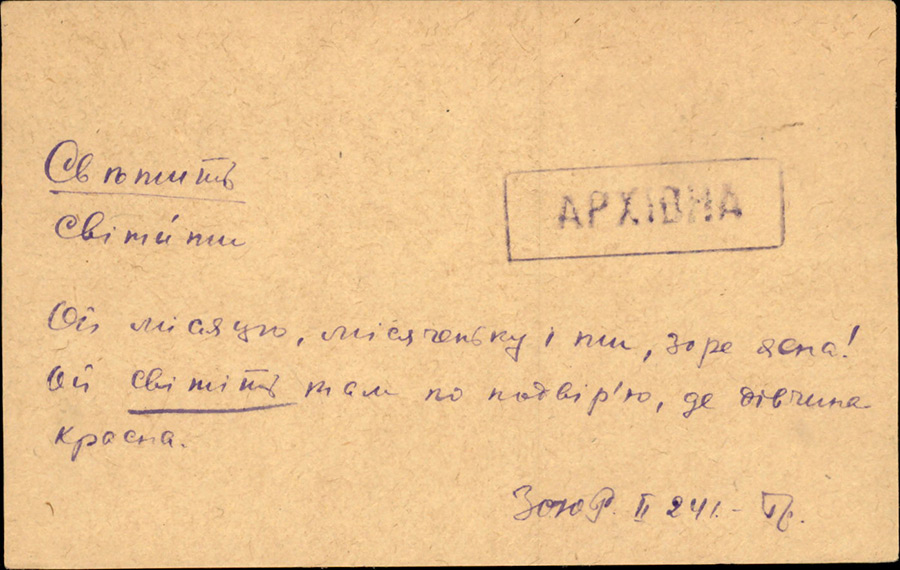 Свѣтить
світи́ти
АРХІВНА
Ой місяцю, місяченьку і ти, зоре ясна!
Ой світіть там по подвір'ю, де дівчина
красна.
ЗЮЗОР. II 241.- Гр.